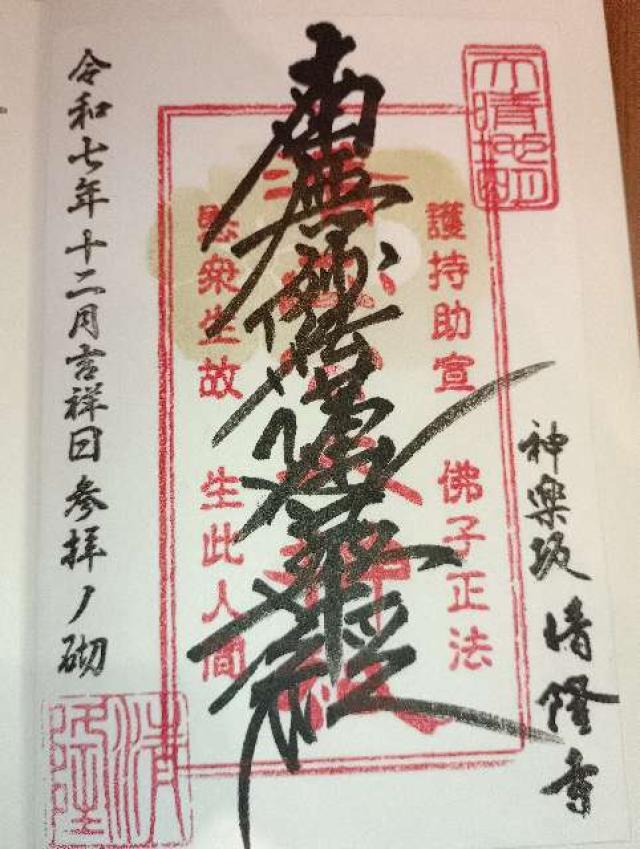 天晴地明
神樂坂 清隆寺
護持助宣 佛子正法
南無妙法蓮華経
愍衆生故 生此人間
令和七年十二月吉祥日参拝ノ砌